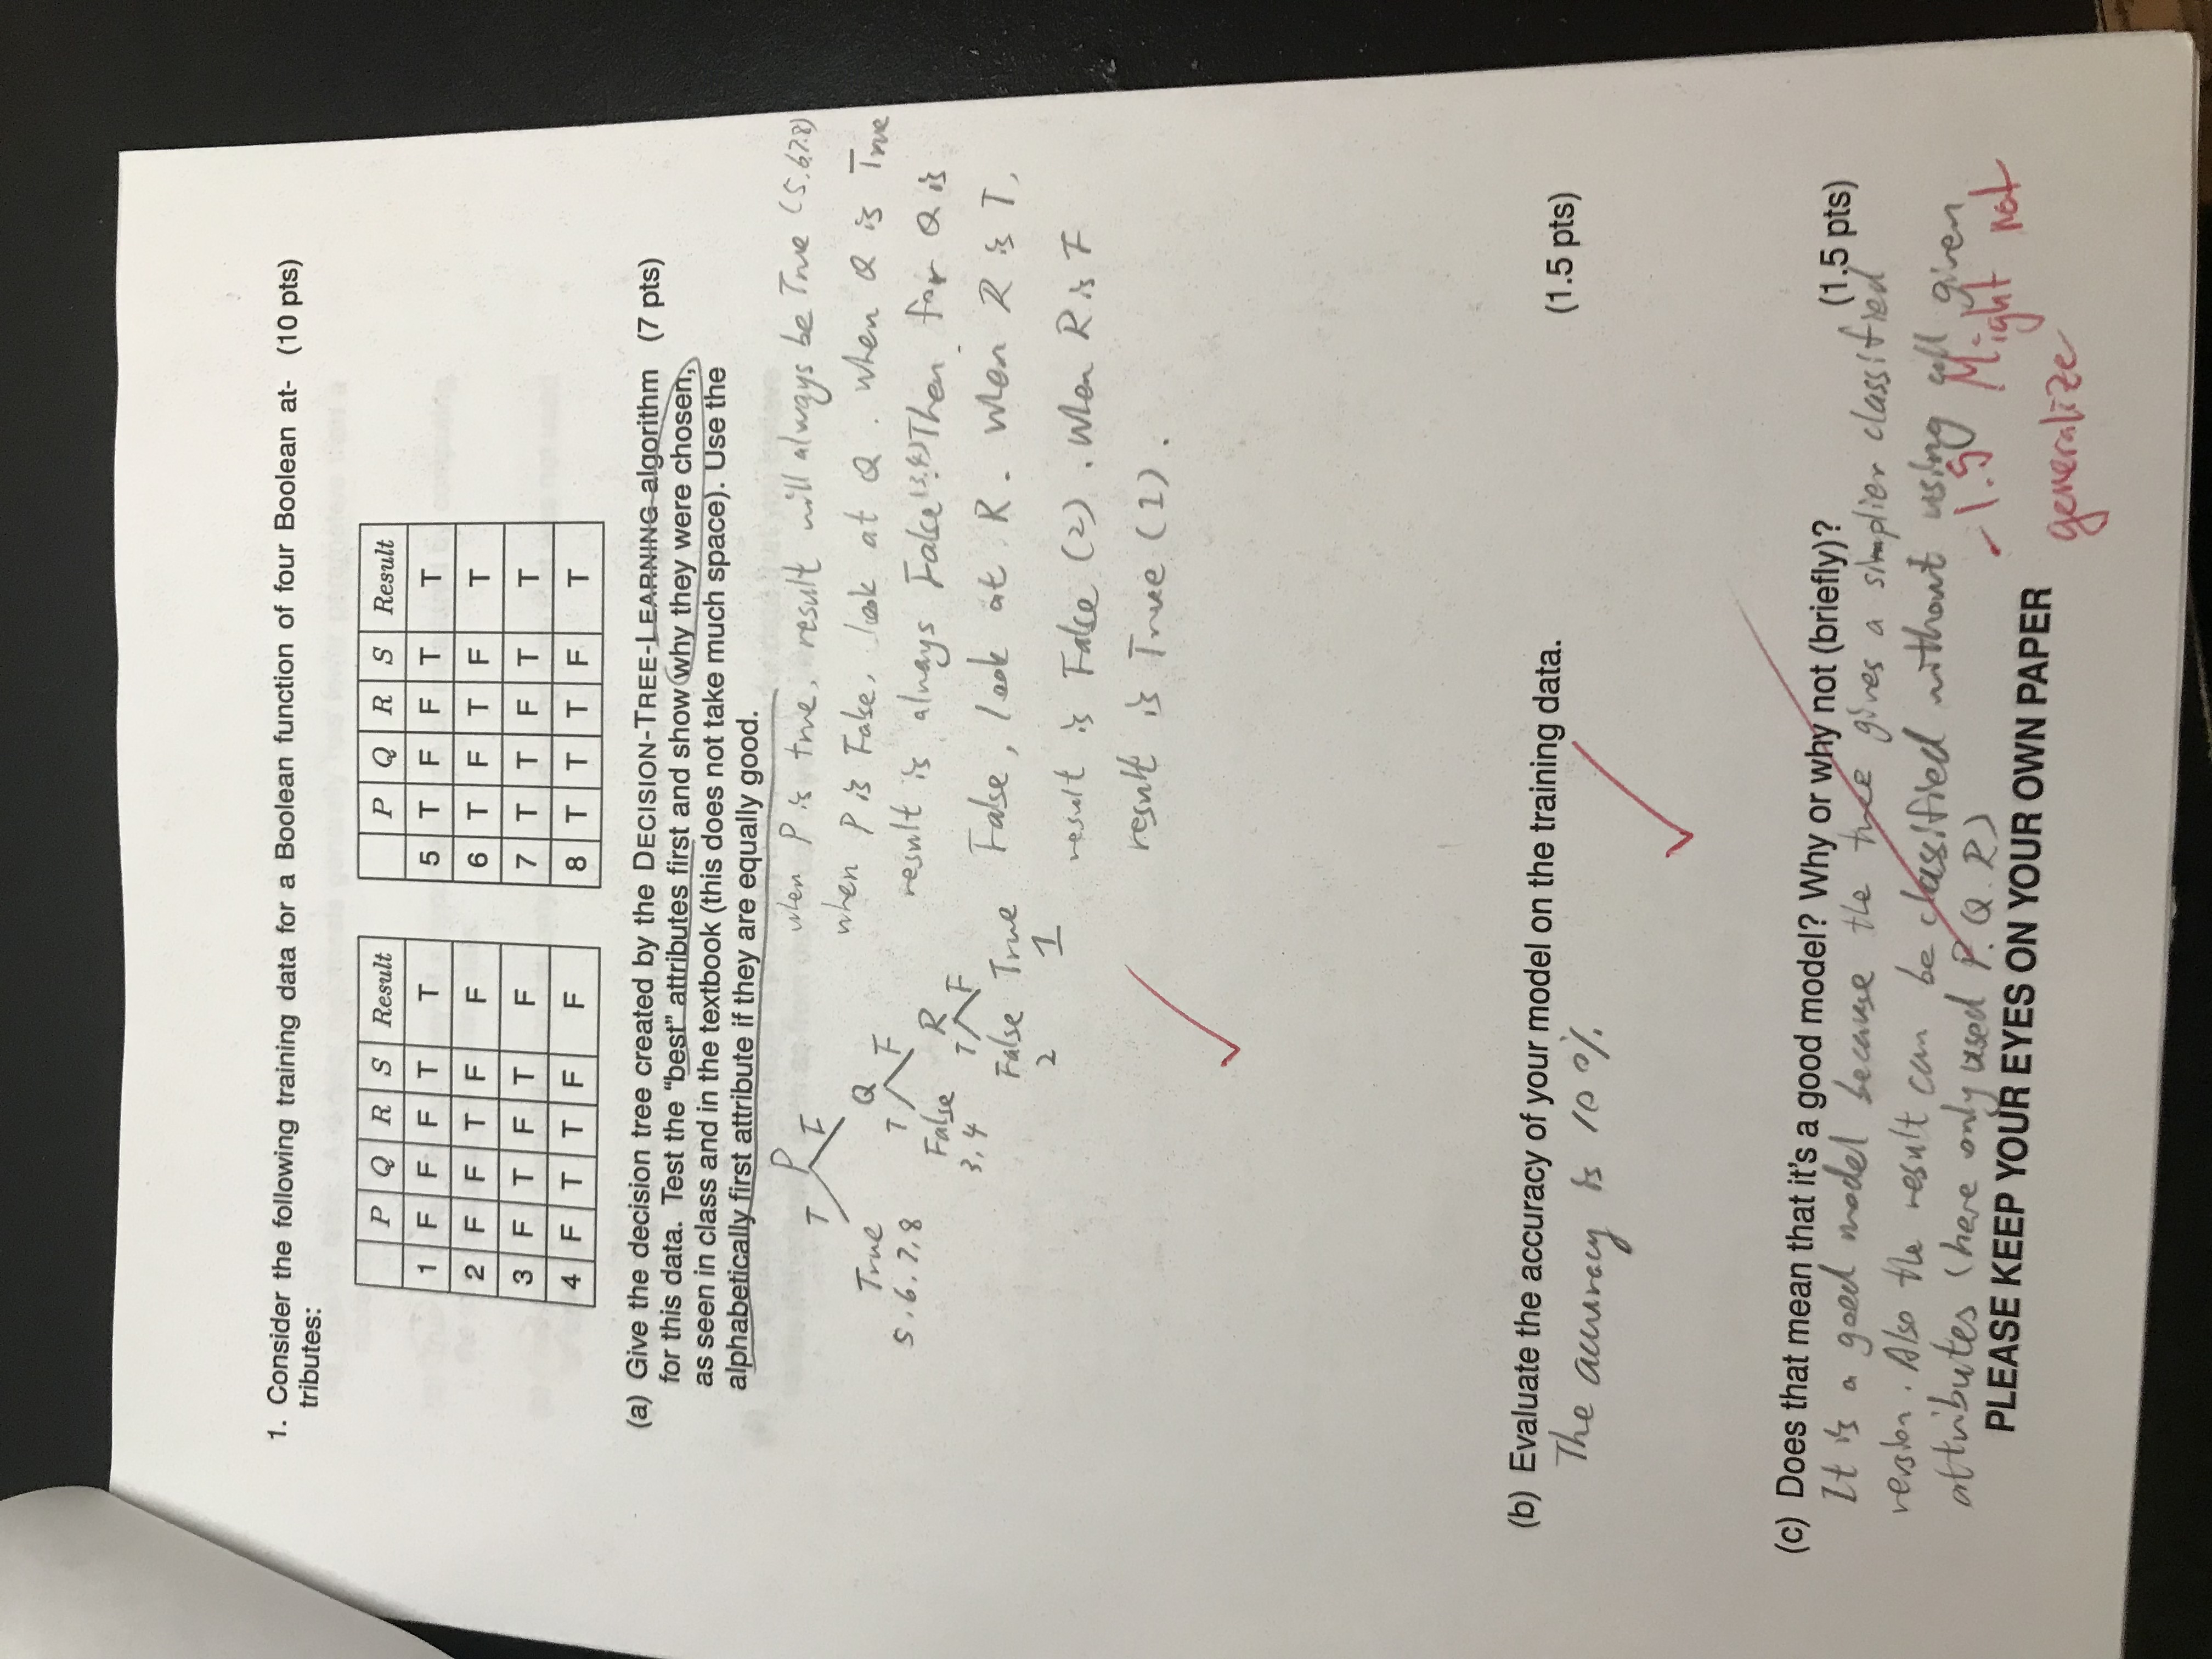 1. Consider the following training data for a Boolean function of four Boolean at- (10 pts)
tributes:
P Q R S Result
1 F F F T T
2 F F T F F
3 F T F T F
4 F T T F F
P Q R S Result
5 T F F T T
6 T F T F T
7 T T F T T
8 T T T F T
(a) Give the decision tree created by the DECISION-TREE-LEARNING algorithm (7 pts)
for this data. Test the “best” attributes first and show why they were chosen,
as seen in class and in the textbook (this does not take much space). Use the
alphabetically first attribute if they are equally good.
P
T F
True Q
5,6,7,8 T F
False R
3,4 T F
False True
2 1
when P is true, result will always be True (5.6.7.8)
when P is False, look at Q. When Q is True
result is always False (3,4). Then for Q is
False, look at R. When R is T,
result is False (2). When R is F
result is True (1).
(b) Evaluate the accuracy of your model on the training data. (1.5 pts)
The accuracy is 100%
(c) Does that mean that it's a good model? Why or why not (briefly)? (1.5 pts)
It is a good model because the tree gives a simplier classified
version. Also the result can be classified without using all given
attributes (here only used P.Q.R)
-1.5 Might not
generalize
PLEASE KEEP YOUR EYES ON YOUR OWN PAPER